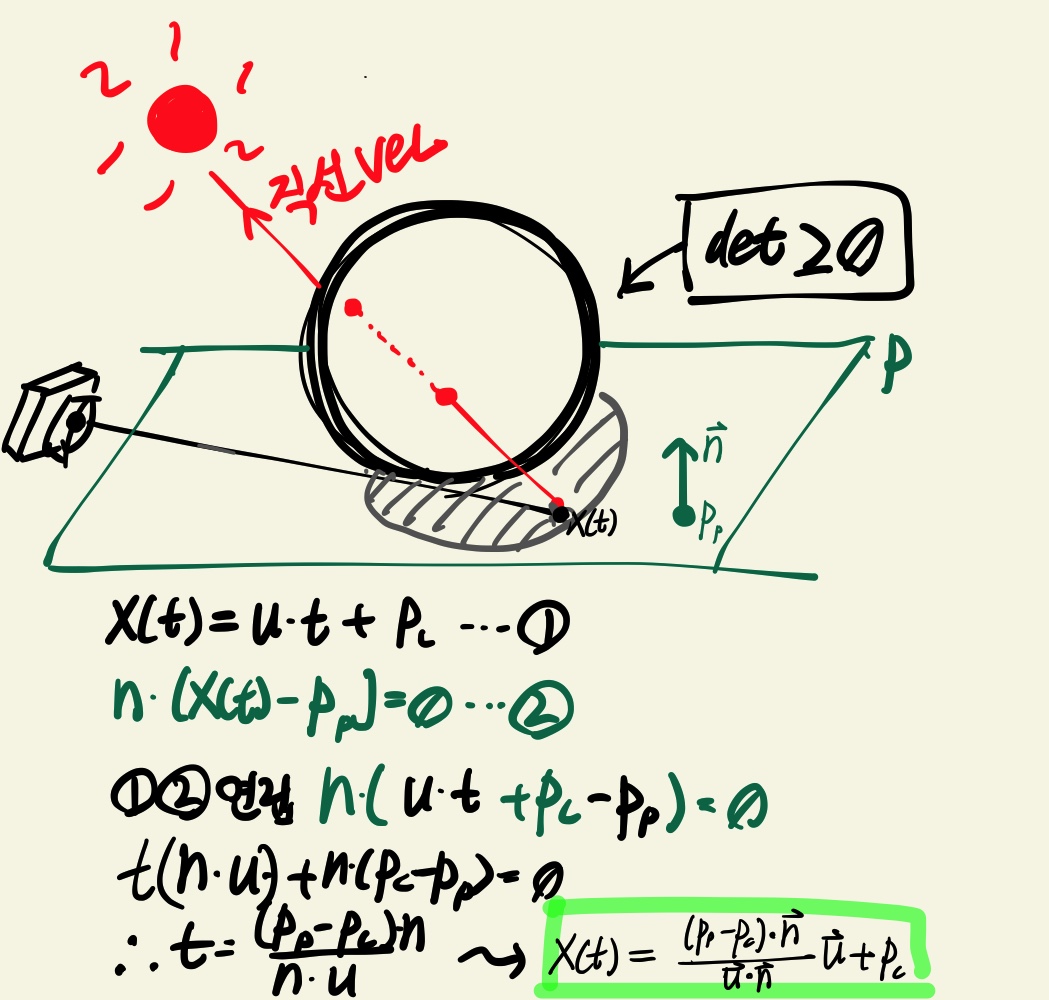 직선 vec
det ≥ 0
P
n⃗
Pₚ
X(t)
X(t) = u·t + P_c ··· ①
n·(X(t) - Pₚ) = 0 ··· ②
①② 연립 n·(u·t + P_c - Pₚ) = 0
t(n·u) + n·(P_c - Pₚ) = 0
∴ t = (Pₚ - P_c)·n / n·u ⇝ X(t) = (Pₚ - P_c)·n⃗ / u⃗·n⃗ u⃗ + P_c